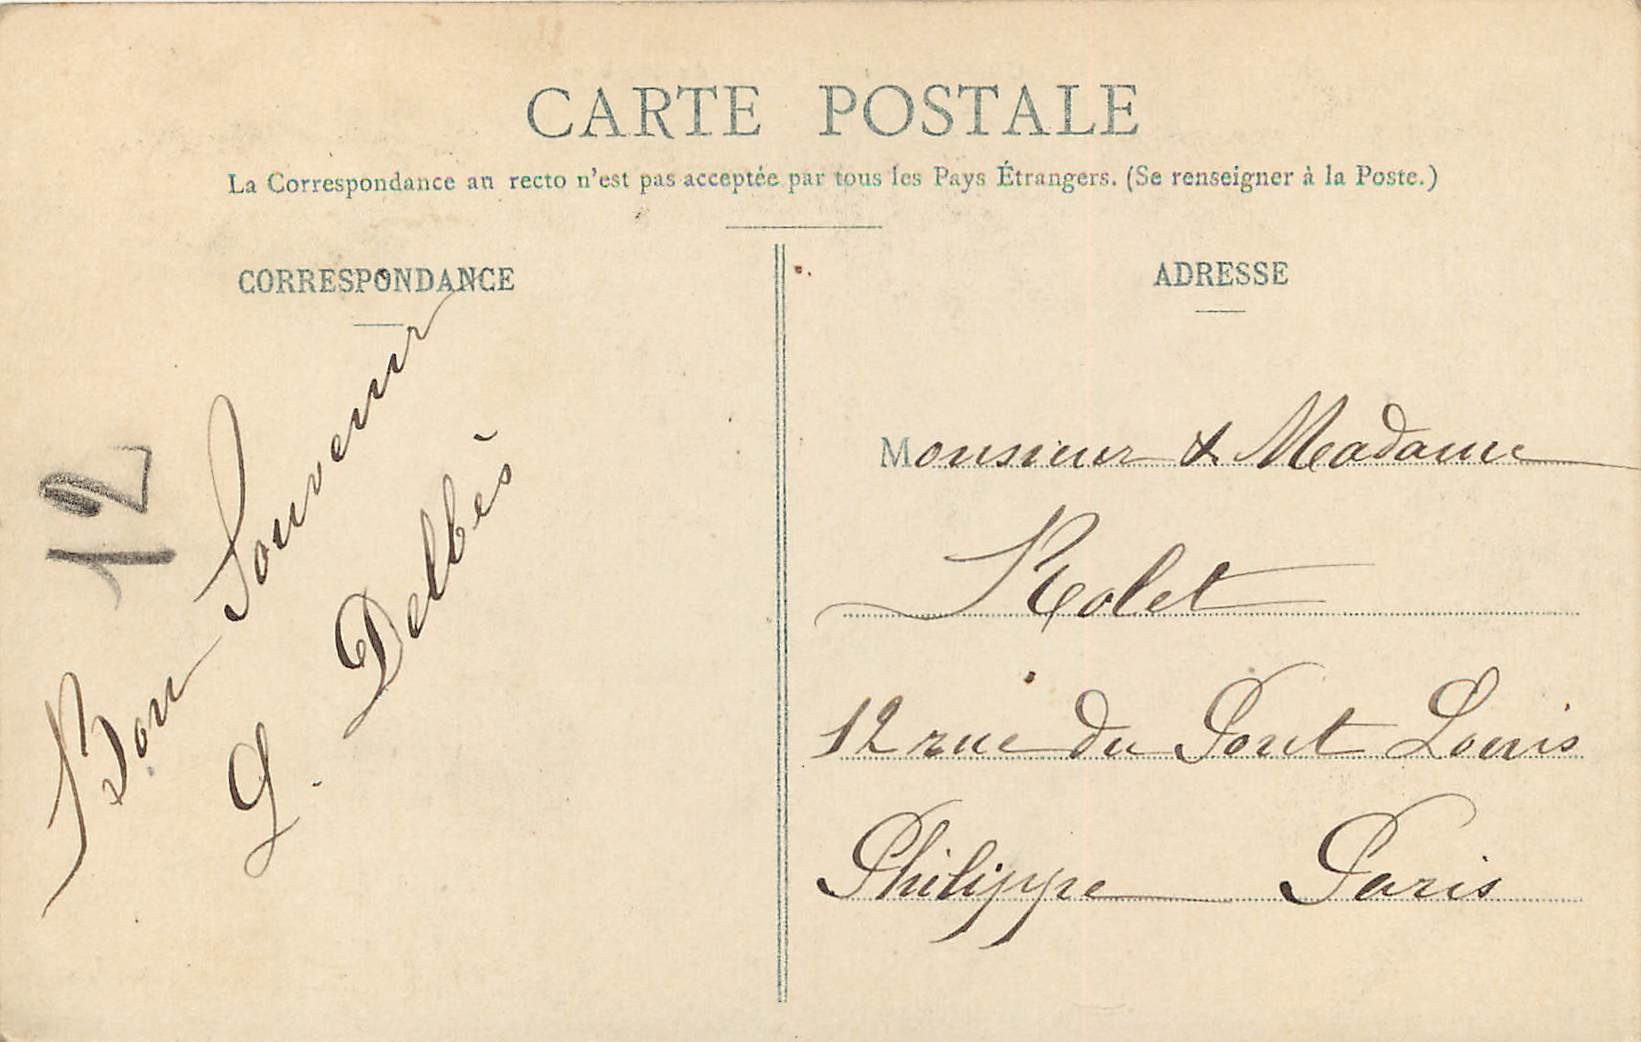 CARTE POSTALE
La Correspondance au recto n'est pas acceptée par tous les Pays Étrangers. (Se renseigner à la Poste.)
CORRESPONDANCE
Bon Souvenir
G. Delbès
12
ADRESSE
Monsieur & Madame
Rolet
12 rue du Pont Louis
Philippe Paris